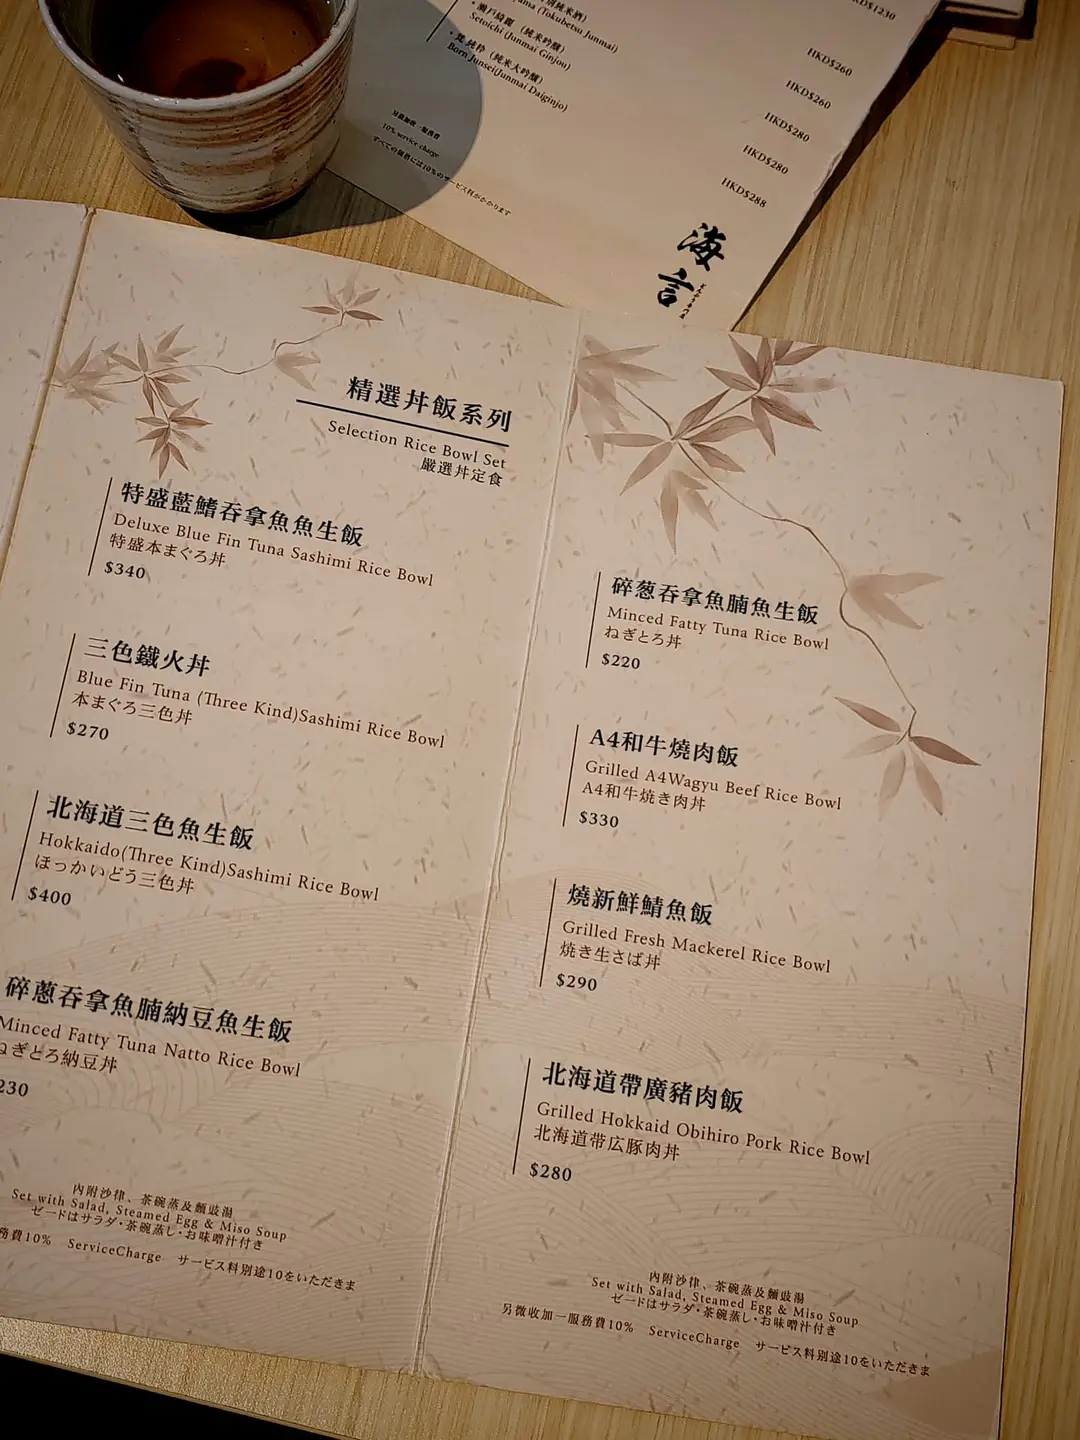 HKD$1230
(Tokubetsu Junmai)
Setoichi (Junmai Ginjou)
HKD$260
(純米大吟醸)
Born Junsei(Junmai Daiginjo)
HKD$260
HKD$280
HKD$280
HKD$288
另設加收一服務費
10% service charge
すべての価格には10%のサービス料がかかります
海言
精選丼飯系列
Selection Rice Bowl Set
嚴選丼定食
特盛藍鰭吞拿魚魚生飯
Deluxe Blue Fin Tuna Sashimi Rice Bowl
特盛本まぐろ丼
$340
三色鐵火丼
Blue Fin Tuna (Three Kind)Sashimi Rice Bowl
本まぐろ三色丼
$270
北海道三色魚生飯
Hokkaido(Three Kind)Sashimi Rice Bowl
ほっかいどう三色丼
$400
碎蔥吞拿魚腩納豆魚生飯
Minced Fatty Tuna Natto Rice Bowl
ねぎとろ納豆丼
230
內附沙律、茶碗蒸及麵豉湯
Set with Salad, Steamed Egg & Miso Soup
ゼードはサラダ・茶碗蒸し・お味噌汁付き
務費10% ServiceCharge サービス料別途10をいただきま
碎葱吞拿魚腩魚生飯
Minced Fatty Tuna Rice Bowl
ねぎとろ丼
$220
A4和牛燒肉飯
Grilled A4Wagyu Beef Rice Bowl
A4和牛焼き肉丼
$330
燒新鮮鯖魚飯
Grilled Fresh Mackerel Rice Bowl
焼き生さば丼
$290
北海道帶廣豬肉飯
Grilled Hokkaid Obihiro Pork Rice Bowl
北海道帯広豚肉丼
$280
內附沙律、茶碗蒸及麵豉湯
Set with Salad, Steamed Egg & Miso Soup
ゼードはサラダ・茶碗蒸し・お味噌汁付き
另微收加一服務費10% ServiceCharge サービス料別途10をいただきま